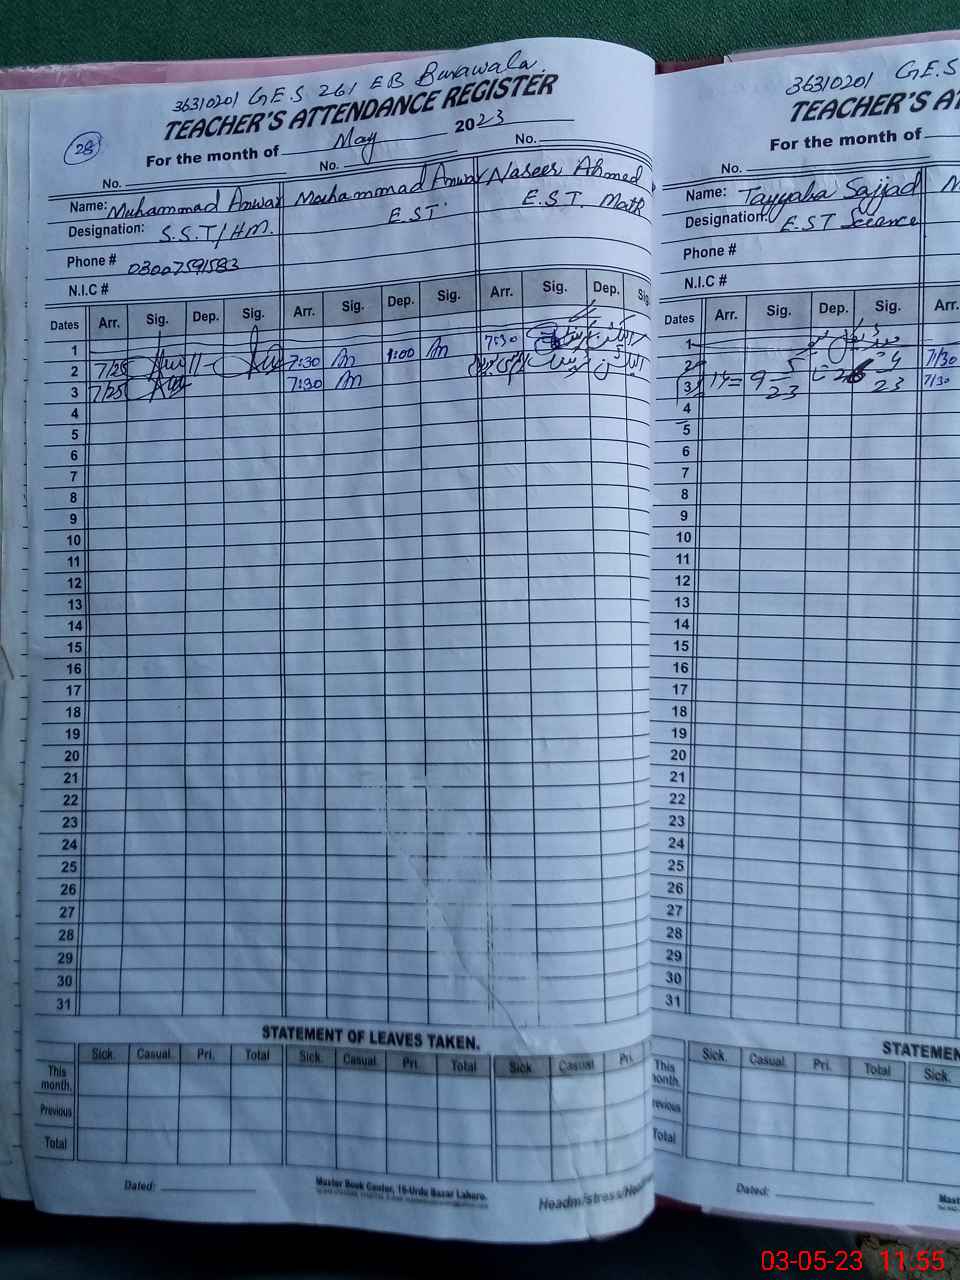 36310201 G.E.S 261 EB Burawala.
TEACHER'S ATTENDANCE REGISTER
28
For the month of May 2023
No. No. No.
Name: Muhammad Anwar Muhammad Anwar Naseer Ahmed
Designation: S.S.T/HM. E.ST E.S.T. Math
Phone # 03007591583
N.I.C #
Dates Arr. Sig. Dep. Sig. Arr. Sig. Dep. Sig. Arr. Sig. Dep. Sig.
1 7:30
2 7/25 7:30 1:00
3 7/25 7:30
4
5
6
7
8
9
10
11
12
13
14
15
16
17
18
19
20
21
22
23
24
25
26
27
28
29
30
31
STATEMENT OF LEAVES TAKEN.
Sick. Casual. Pri. Total Sick. Casual. Pri. Total Sick Casual. Pri.
This month.
Previous
Total
Dated:
Master Book Center, 16-Urdu Bazar Lahore.
Headmistress/
36310201 G.E.S
TEACHER'S AT
For the month of
No.
Name: Tayyaba Sajjad
Designation: E.ST Science
Phone #
N.I.C #
Dates Arr. Sig. Dep. Sig. Arr.
1
2 7/30
3 7/30
4
5
6
7
8
9
10
11
12
13
14
15
16
17
18
19
20
21
22
23
24
25
26
27
28
29
30
31
STATEMEN
Sick. Casual. Pri. Total Sick.
This month.
revious
Total
Dated:
Mast
03-05-23 11:55